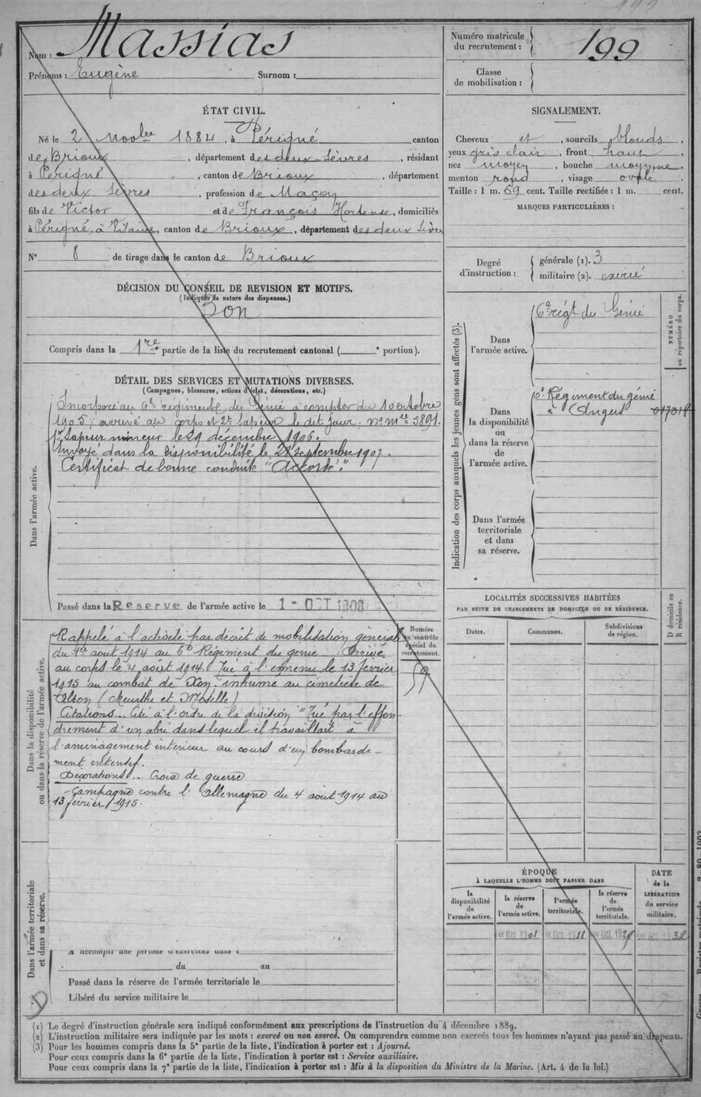 Nom : Massias
Prénoms : Eugène Surnom :
ÉTAT CIVIL.
Né le 2 Novbre 1884, à Périgné canton
de Brioux, département des deux-Sèvres, résidant
à Périgné, canton de Brioux, département
des deux Sèvres, profession de Maçon
fils de Victor et de François Hortense, domiciliés
à Périgné, à canton de Brioux, département des deux Sèvres
N° 8 de tirage dans le canton de Brioux
DÉCISION DU CONSEIL DE REVISION ET MOTIFS.
(Indiquer la nature des dispenses.)
Bon
Compris dans la 1re partie de la liste du recrutement cantonal ( e portion).
DÉTAIL DES SERVICES ET MUTATIONS DIVERSES.
(Campagnes, blessures, actions d'éclat, décorations, etc.)
Dans l'armée active.
Incorporé au 6e régiment du Génie à compter du 10 octobre
1905, arrivé au corps et 2e sapeur le dit jour. No mle 5891.
1er Sapeur mineur le 29 décembre 1906.
Envoyé dans la disponibilité le 28 septembre 1907.
Certificat de bonne conduite "Accordé."
Passé dans la Réserve de l'armée active le 1 - OCT 1908
Dans la disponibilité
ou dans la réserve de l'armée active.
Rappelé à l'activité par décret de mobilisation générale
du 1er août 1914 au 6e Régiment du génie Arrivé
au corps le 4 août 1914. Tué à l'ennemi le 13 février
1915 au combat de Xon inhumé au cimetière de
(Meurthe et Moselle)
Citations. Cité à l'ordre de la division "Tué par l'effon-
drement d'un abri dans lequel il travaillait à
l'aménagement intérieur au cours d'un bombarde-
ment intensif.
Décorations. Croix de guerre
Campagne contre l'Allemagne du 4 août 1914 au
13 février 1915.
Numéro
au contrôle
spécial du
recrutement.
59
Dans l'armée territoriale
et dans sa réserve.
A accompli une période d'exercices dans l
du au
Passé dans la réserve de l'armée territoriale le
Libéré du service militaire le
Numéro matricule
du recrutement : 199
Classe
de mobilisation :
SIGNALEMENT.
Cheveux et , sourcils blonds
yeux gris clair, front haut
nez moyen, bouche moyenne
menton rond, visage ovale
Taille : 1 m. 69 cent. Taille rectifiée : 1 m. cent.
MARQUES PARTICULIÈRES :
Degré
d'instruction :
générale (1). 3
militaire (2). exercé
Indication des corps auxquels les jeunes gens sont affectés (3).
NUMÉRO
au répertoire du corps.
Dans
l'armée active.
6e régt du Génie
Dans
la disponibilité
ou dans la réserve
de l'armée active.
6e Régiment du génie
à Angers
Dans l'armée
territoriale
et dans
sa réserve.
LOCALITÉS SUCCESSIVES HABITÉES
PAR SUITE DE CHANGEMENTS DE DOMICILE OU DE RÉSIDENCE.
Dates.
Communes.
Subdivisions
de région.
D domicile ou
R résidence.
ÉPOQUE
À LAQUELLE L'HOMME DOIT PASSER DANS
la
disponibilité
de
l'armée active.
la réserve
de
l'armée active.
l'armée
territoriale.
la réserve
de
l'armée
territoriale.
DATE
de la
LIBÉRATION
du service
militaire.
(1) Le degré d'instruction générale sera indiqué conformément aux prescriptions de l'instruction du 4 décembre 1889.
(2) L'instruction militaire sera indiquée par les mots : exercé ou non exercé. On comprendra comme non exercés tous les hommes n'ayant pas passé au drapeau.
(3) Pour les hommes compris dans la 5e partie de la liste, l'indication à porter est : Ajourné.
Pour ceux compris dans la 6e partie de la liste, l'indication à porter est : Service auxiliaire.
Pour ceux compris dans la 7e partie de la liste, l'indication à porter est : Mis à la disposition du Ministre de la Marine. (Art. 4 de la loi.)